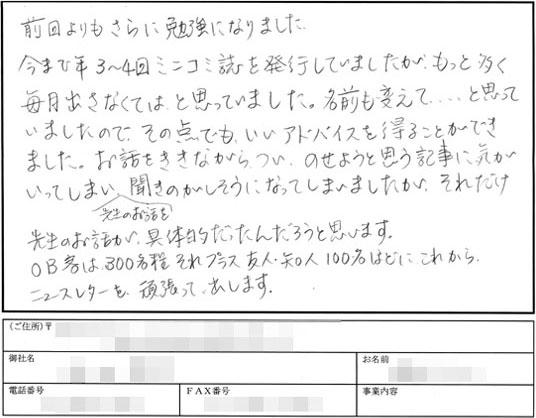 前回よりもさらに勉強になりました。
今まで年3〜4回ミニコミ誌を発行していましたが、もっと多く
毎月出さなくては、と思っていました。名前も変えて....と思って
いましたので、その点でも、いいアドバイスを得ることができ
ました。お話をききながら、つい、のせようと思う記事に気が
いってしまい、聞きのがしそうになってしまいましたが、それだけ
先生のお話を
先生のお話が、具体的だったんだろうと思います。
OB客は、300名程、それプラス友人・知人100名ほどに、これから、
ニュースレターを、頑張って、出します。
(ご住所)〒
御社名
お名前
電話番号
FAX番号
事業内容